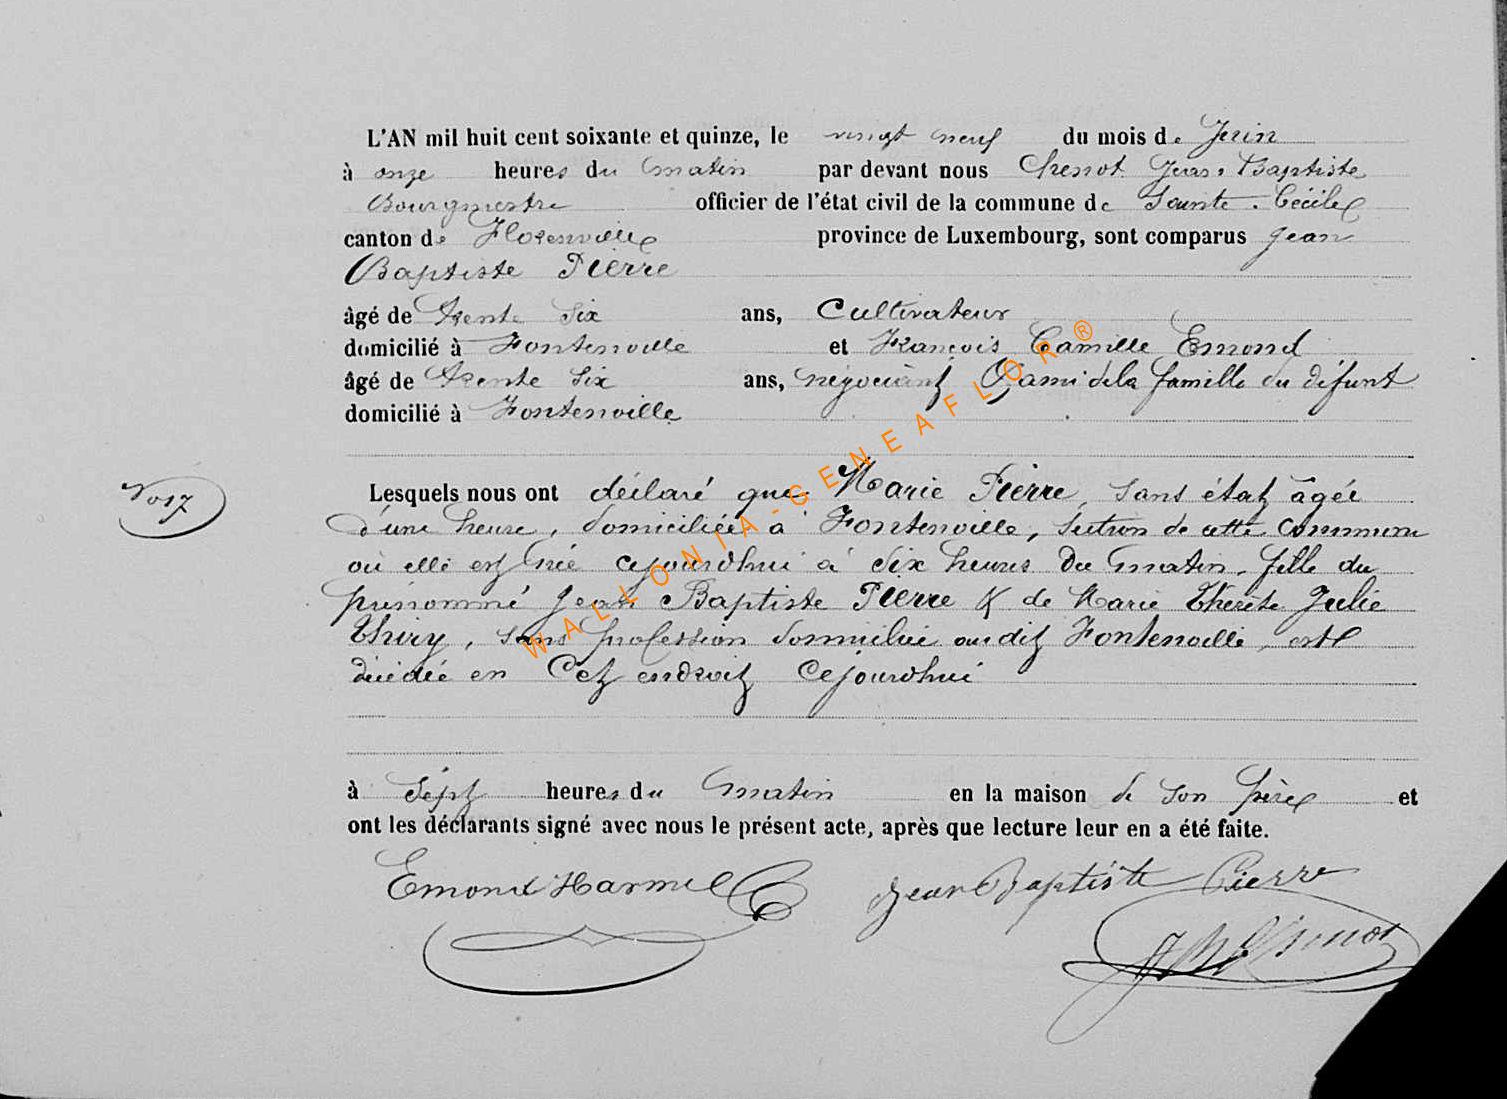 L'AN mil huit cent soixante et quinze, le vingt neuf du mois de Juin
à onze heures du matin par devant nous Chenot Jean-Baptiste
Bourgmestre officier de l'état civil de la commune de Sainte-Cécile
canton de Florenville province de Luxembourg, sont comparus Jean
Baptiste Pierre
âgé de trente six ans, Cultivateur
domicilié à Fontenoille et François Camille Emond
âgé de trente six ans, négociant & ami dela famille du défunt
domicilié à Fontenoille
No 17
Lesquels nous ont déclaré que Marie Pierre, sans état âgée
d'une heure, domiciliée à Fontenoille, section de cette commune
où elle est née cejourdhui à six heures du matin, fille du
prénommé Jean Baptiste Pierre & de Marie Thérèse Julie
Thiry, sans profession domiciliée audit Fontenoille, est
décédée en Cet endroit Cejourdhui
à Sept heures du matin en la maison de son père et
ont les déclarants signé avec nous le présent acte, après que lecture leur en a été faite.
Emond Harmel Jean Baptiste Pierre
JB Chenot
WALLONIA-GENEAFLOR®